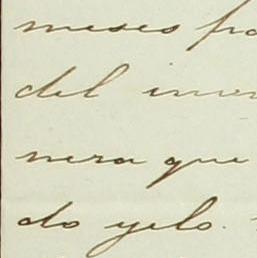 meses pa
del inver
nera que
do yelo.